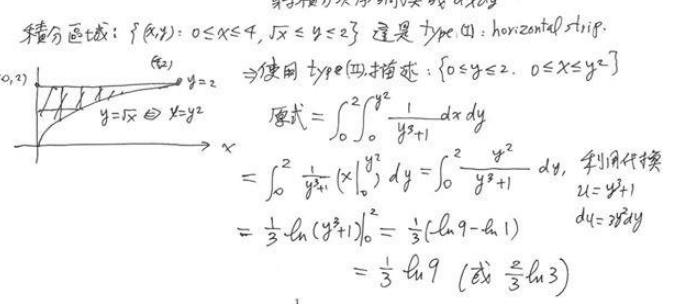 積分區域：{(x,y): 0≤x≤4, √x ≤ y ≤ 2} 這是 type(I): horizontal strip.
0,2)
(4,2)
y=2
y=√x ⇔ x=y²
x
⇒使用 type(II)描述：{0≤y≤2. 0≤x≤y²}
原式 = ∫₀² ∫₀^{y²} 1/(y³+1) dx dy
= ∫₀² 1/(y³+1) (x|₀^{y²}) dy = ∫₀² y²/(y³+1) dy, 利用代換
u=y³+1
du=3y²dy
= 1/3 ln(y³+1)|₀² = 1/3(ln9-ln1)
= 1/3 ln9 (或 2/3 ln3)